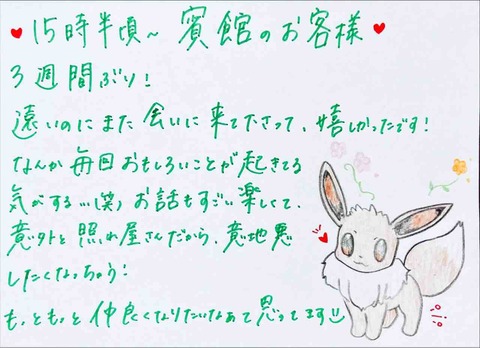 ♥15時半頃~ 賓館のお客様♥
3週間ぶり!
遠いのにまた会いに来て下さって、嬉しかったです!
なんか毎回おもしろいことが起きてる
気がする…(笑) お話もすごい楽しくて、
意外と照れ屋さんだから、意地悪
したくなっちゃう!
もっともっと仲良くなりたいなあて思ってます☺